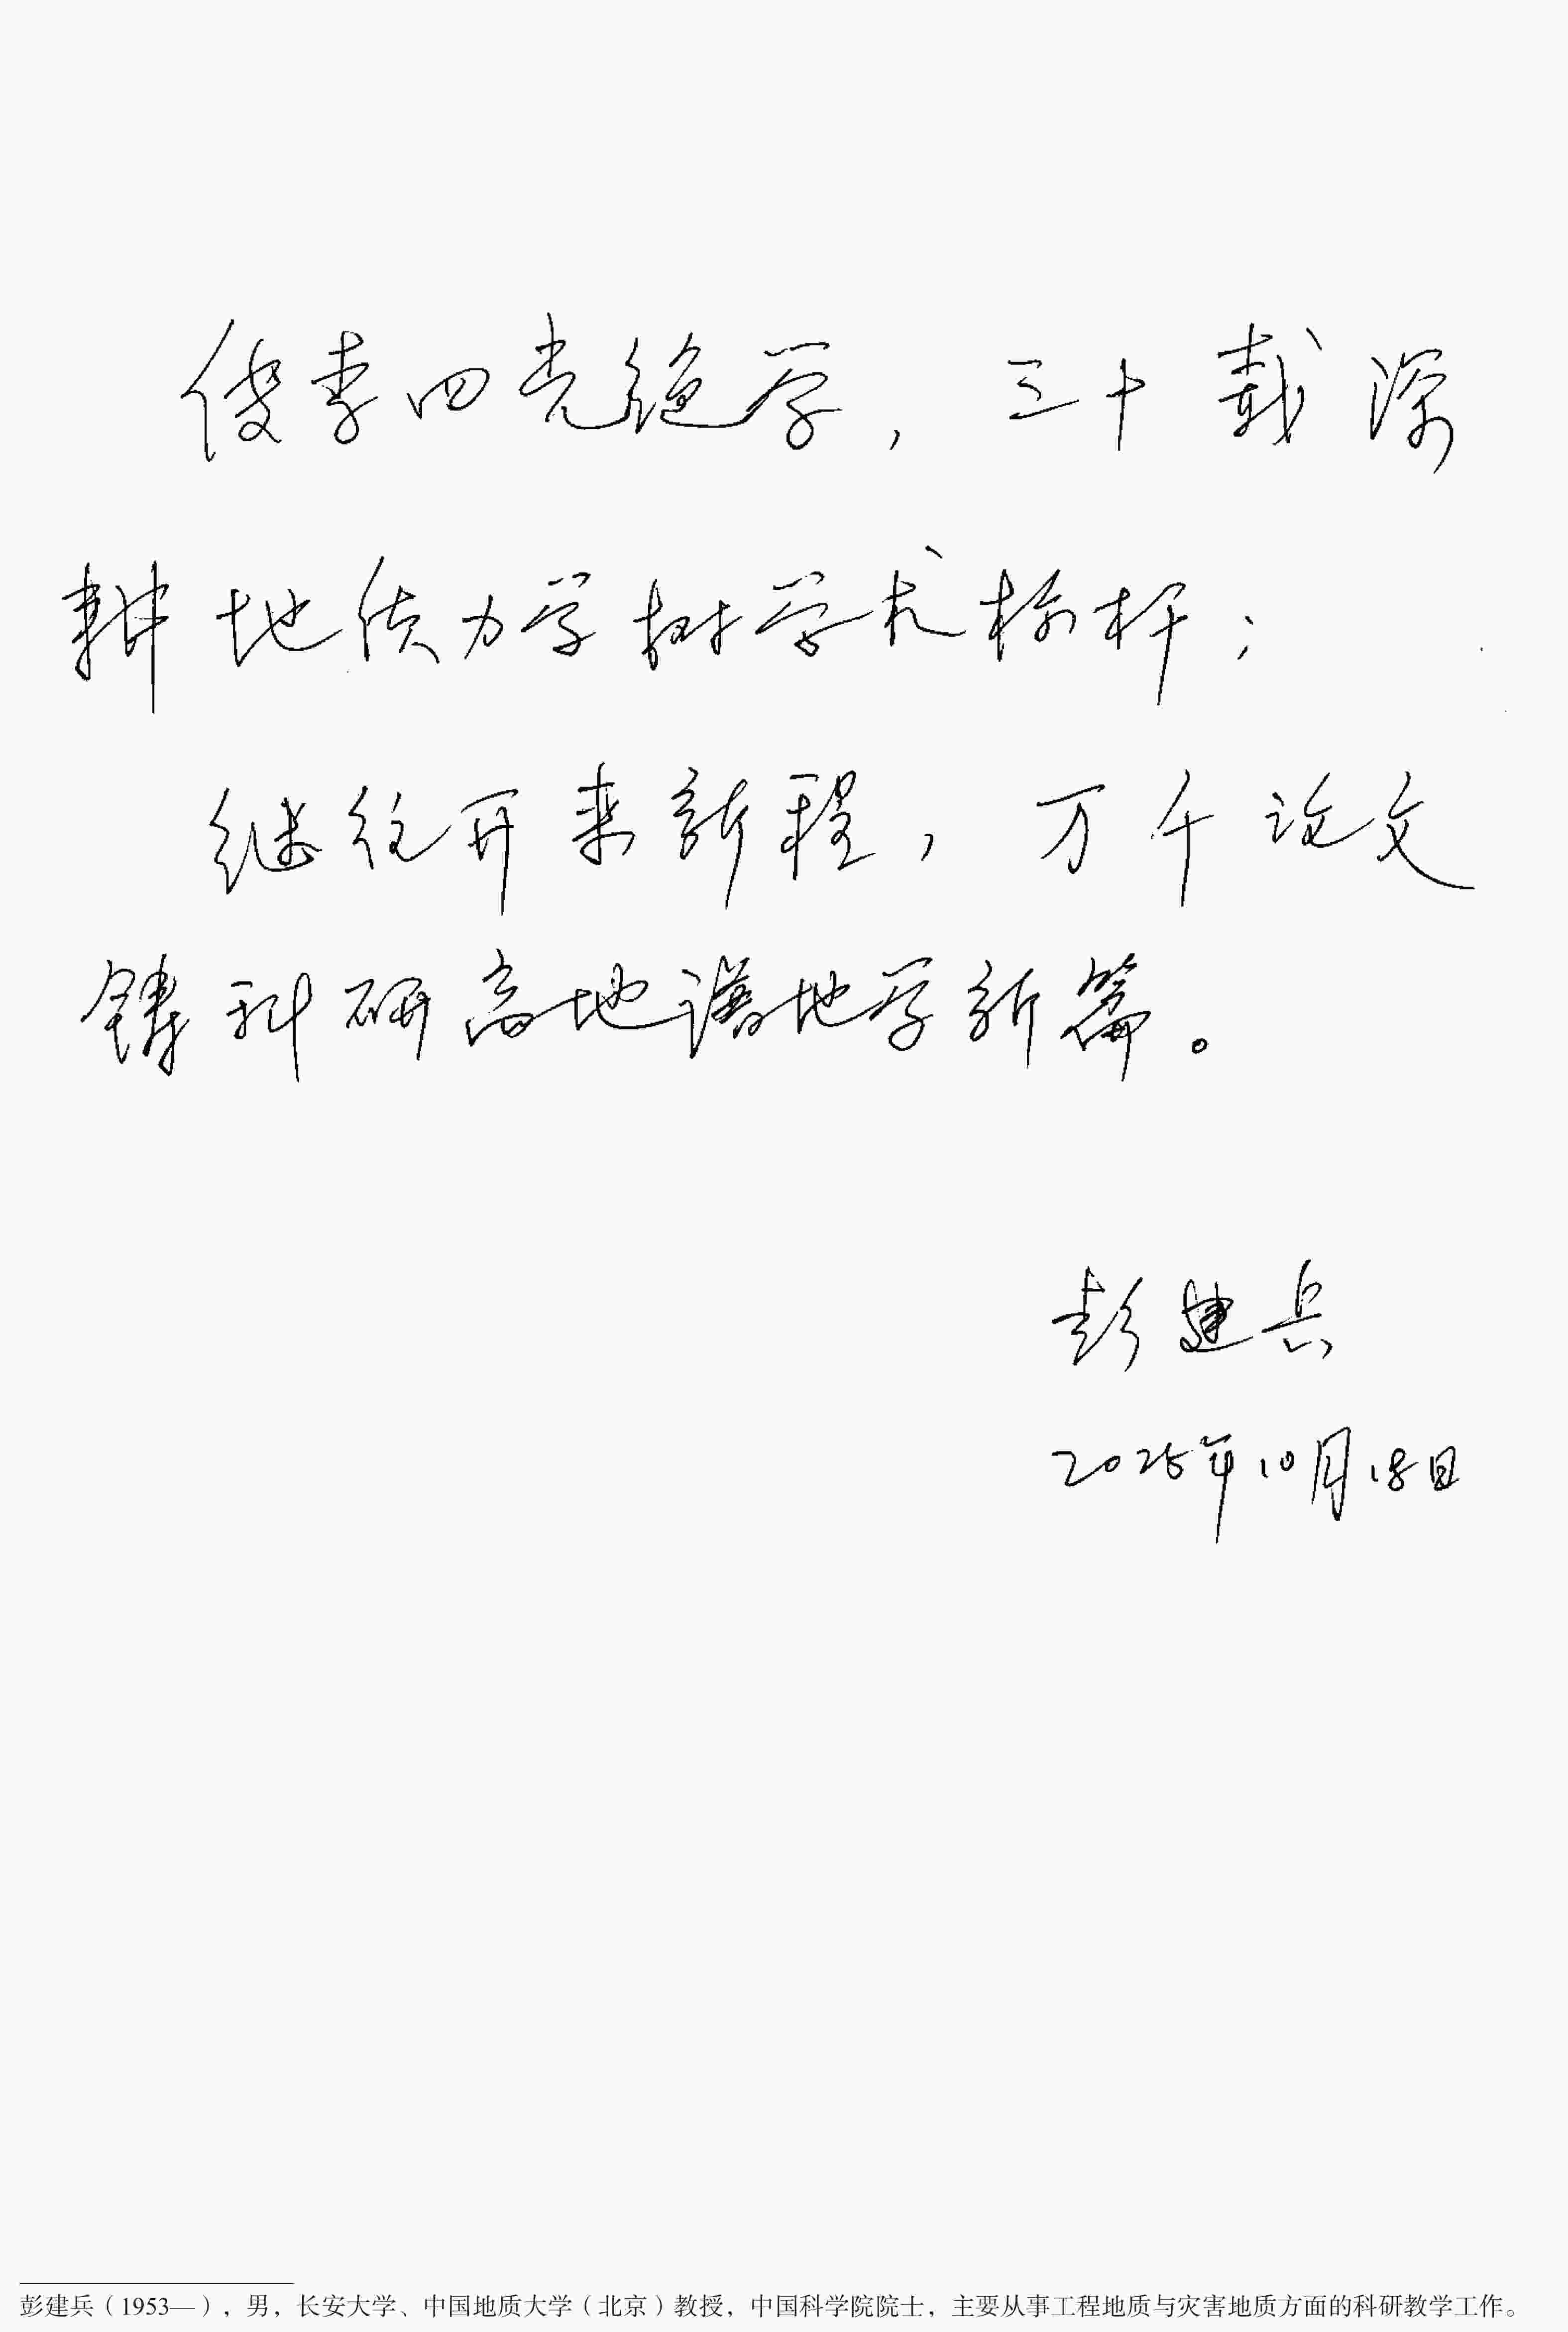 李四光绝学，三十载深
耕地质力学树学术标杆；
继往开来新程，万千论文
铸科研高地谱地学新篇。
彭建兵
2025年10月18日
彭建兵（1953—），男，长安大学、中国地质大学（北京）教授，中国科学院院士，主要从事工程地质与灾害地质方面的科研教学工作。